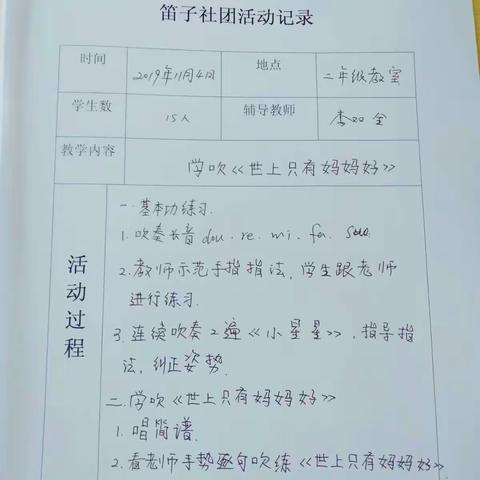 笛子社团活动记录
时间 2019年11月4日 地点 二年级教室
学生数 15人 辅导教师 李双全
教学内容 学吹《世上只有妈妈好》
活动过程
一.基本功练习.
1.吹奏长音dou.re.mi.fa.Soo.
2.教师示范手指指法,学生跟老师
进行练习.
3.连续吹奏2遍《小星星》,指导指
法,纠正姿势.
二.学吹《世上只有妈妈好》
1.唱简谱.
2.看老师手势逐句吹练《世上只有妈妈好》.